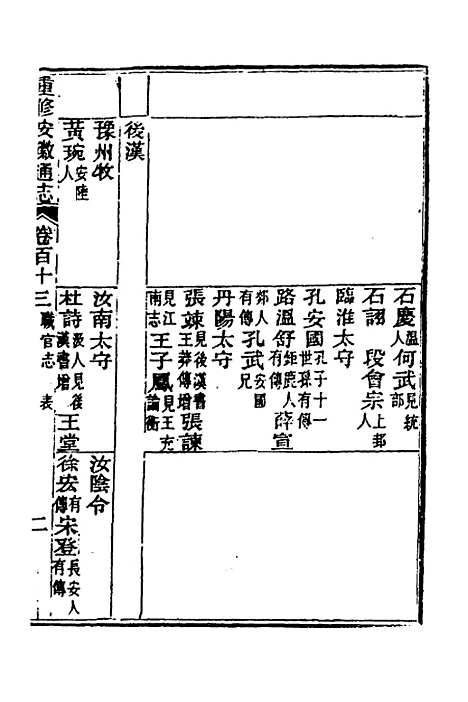 石慶溫人何武見統部
石詡 段會宗上邽人
臨淮太守
孔安國孔子十一世孫有傳
路溫舒鉅鹿人有傳薛宣
郯人有傳孔武安國兄
丹陽太守
張竦見後漢書王莽傳增張諫
見江南志王子鳳見王充論衡
後漢
豫州牧
汝南太守
汝陰令
黃琬安陸人
杜詩汲人見後漢書增王堂
徐宏有傳宋登長安人有傳
重修安徽通志 卷百十三 職官志 表 二